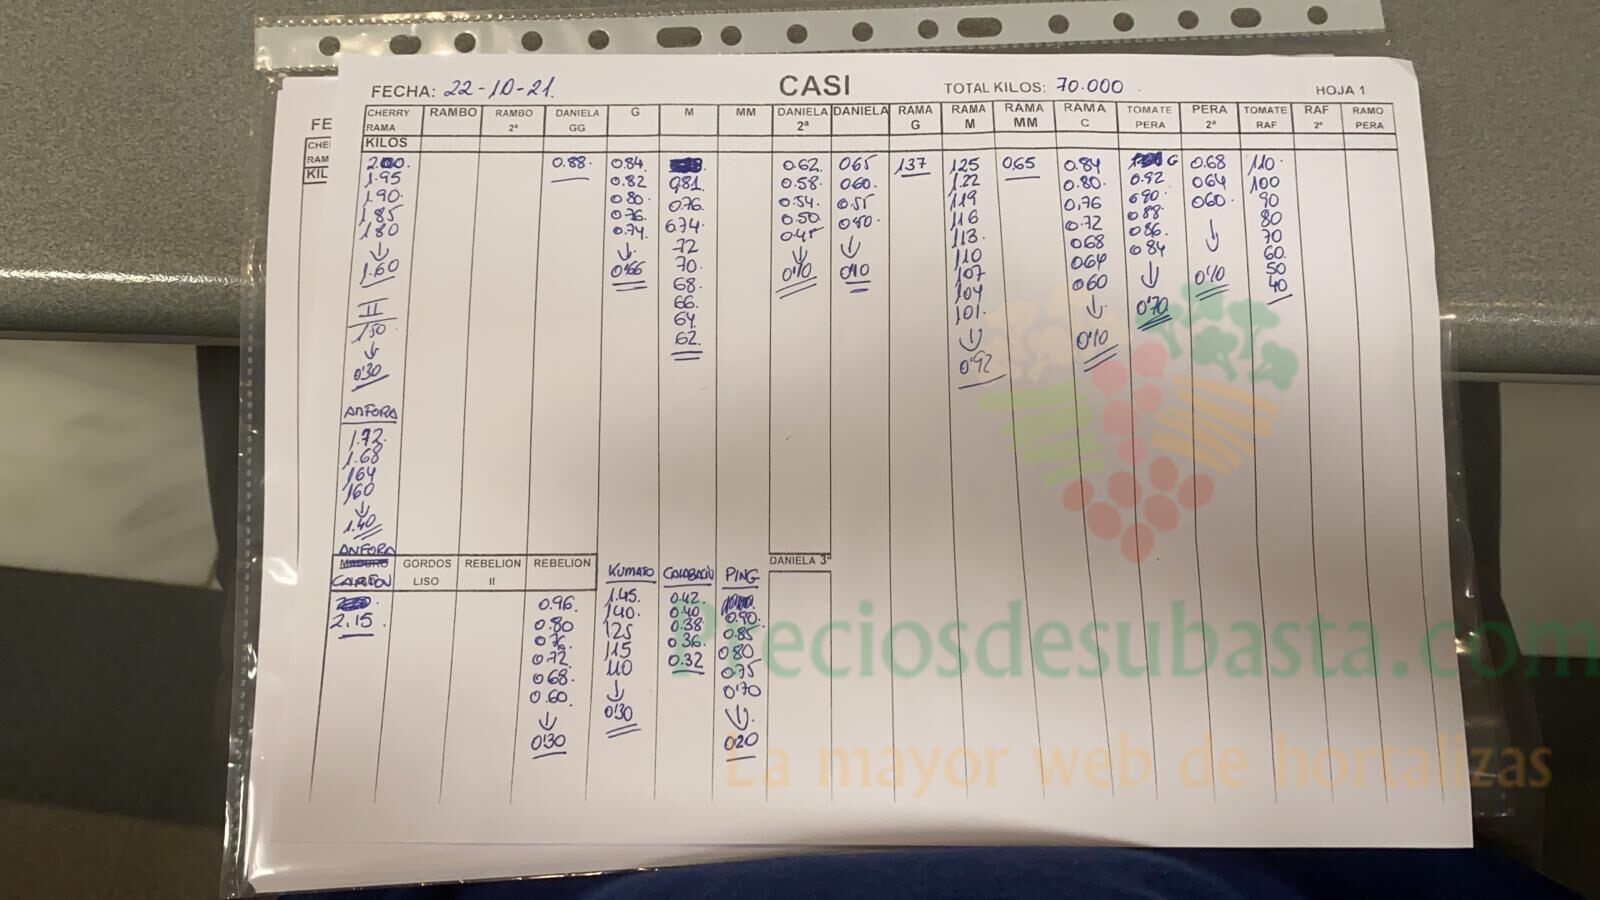 FECHA: 22-10-21. CASI TOTAL KILOS: 70.000 HOJA 1
CHERRY RAMA RAMBO RAMBO 2ª DANIELA GG G M MM DANIELA 2ª DANIELA RAMA G RAMA M RAMA MM RAMA C TOMATE PERA PERA 2ª TOMATE RAF RAF 2ª RAMO PERA
KILOS
2.00
1.95
1.90.
1.85
1.80
↓
1.60
II
1.50.
↓
0'30
ANFORA
1.72.
1.68
164
160
↓
1.40
0.88.
0.84
0.82
0.80.
0.76.
0.74.
↓
0'66
0.81.
0.76.
0.74.
72
70.
68.
66.
64.
62.
0.62.
0.58.
0.54.
0.50.
0.45
↓
0'10
065
060.
0.55
0.40.
↓
0'10
137
125
1.22
119
116
113.
110
107
104
101.
↓
0'92
065
0.84
0.80.
0.76
0.72
068
064
060
↓
0'10
G
0.92
090.
088
086.
084
↓
0'70
0.68
064
060.
↓
0'10
110.
100
90
80
70
60.
50
40
ANFORA
MADURO GORDOS LISO REBELION II REBELION KUMATO CALABACIN PING DANIELA 3ª
CARTON
2.15.
0.96.
0.80
0.76.
0.72
0.68.
0.60.
↓
0'30
1.45.
140.
125
115
110
↓
0'30
0.42.
0.40
0.38
0.36.
0.32
0.90.
0.85
080
0.75
0'70
↓
020
FE
CHE
RAM
KIL
Preciosdesubasta.com
La mayor web de hortalizas